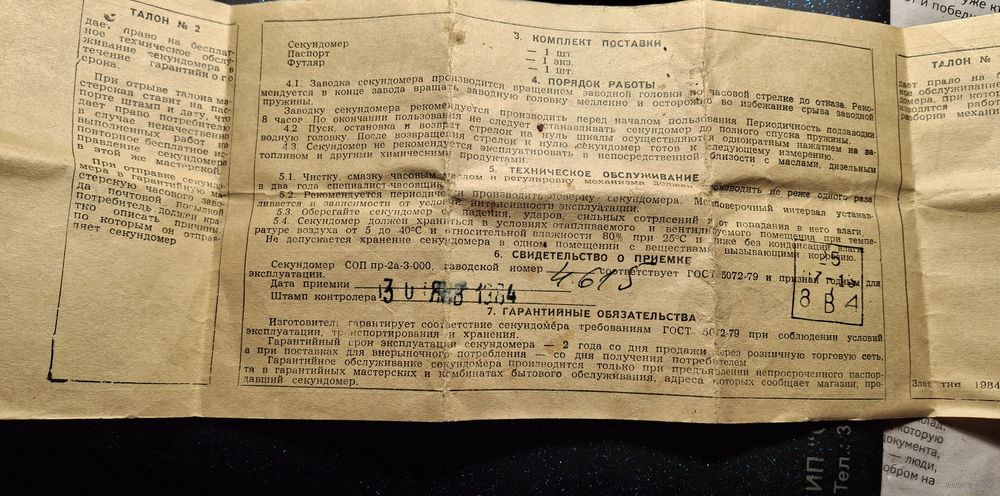 ТАЛОН № 2
дает право на бесплат-
ное техническое обслу-
живание секундомера в
течение гарантийного
срока.
При отрыве талона ма-
стерская ставит на Пас-
порте штамп и дату, что
дает Право потребителю
в случае некачественно
выполненных работ на
повторное бесплатное ис-
правление секундомера
в этой же мастерской.
При отправке секундо-
мера в гарантийную ма-
стерскую часового заво-
да почтовой посылкой
потребитель должен кра-
тко описать причины,
по которым он отправ-
ляет секундомер
3. КОМПЛЕКТ ПОСТАВКИ
Секундомер — 1 шт
Паспорт — 1 экз.
Футляр — 1 шт.
4. ПОРЯДОК РАБОТЫ
4.1. Заводка секундомера производится вращением заводной головки по часовой стрелке до отказа. Реко-
мендуется в конце завода вращать заводную головку медленно и осторожно во избежание срыва заводной
пружины.
Заводку секундомера рекомендуется производить перед началом пользования Периодичность подзаводки
8 часов По окончании пользования не следует останавливать секундомер до полного спуска пружины.
4.2 Пуск, остановка и возврат стрелок на нуль шкалы осуществляются однократным нажатием на за-
водную головку. После возвращения стрелок к нулю секундомер готов к следующему измерению.
4.3 Секундомер не рекомендуется эксплуатировать в непосредственной близости с маслами, дизельным
топливом и другими химическими продуктами.
5. ТЕХНИЧЕСКОЕ ОБСЛУЖИВАНИЕ
5.1. Чистку, смазку часовым маслом и регулировку механизма должен производить не реже одного раза
в два года специалист-часовщик.
5.2. Рекомендуется периодически производить поверку секундомера. Межповерочный интервал устанав-
ливается в зависимости от условий интенсивности эксплуатации.
5.3. Оберегайте секундомер от падения, ударов, сильных сотрясений и от попадания в него влаги
5.4. Секундомер должен храниться в условиях отапливаемого и вентилируемого помещения при темпе-
ратуре воздуха от 5 до 40°С и относительной влажности 80% при 25°С и ниже без конденсации влаги
Не допускается хранение секундомера в одном помещении с веществами, вызывающими коррозию.
6. СВИДЕТЕЛЬСТВО О ПРИЕМКЕ
Секундомер СОП пр-2а-3-000, заводской номер 4615 соответствует ГОСТ 5072-79 и признан годным для
эксплуатации.
Дата приемки 30 ЯНВ 1984
Штамп контролера
8 В 4
7. ГАРАНТИЙНЫЕ ОБЯЗАТЕЛЬСТВА
Изготовитель гарантирует соответствие секундомера требованиям ГОСТ 5072-79 при соблюдении условий
эксплуатации, транспортирования и хранения.
Гарантийный срок эксплуатации секундомера — 2 года со дня продажи через розничную торговую сеть,
а при поставках для внерыночного потребления — со дня получения потребителем
Гарантийное обслуживание секундомера производится только при предъявлении непросроченного паспор-
та в гарантийных мастерских и комбинатах бытового обслуживания, адреса которых сообщает магазин, про-
давший секундомер.
ТАЛОН №
дает право на
обслуживание
Злат. тип 1984
уже
и
которую
документа,
— люди,
добром на
ИП
Тел.: 3